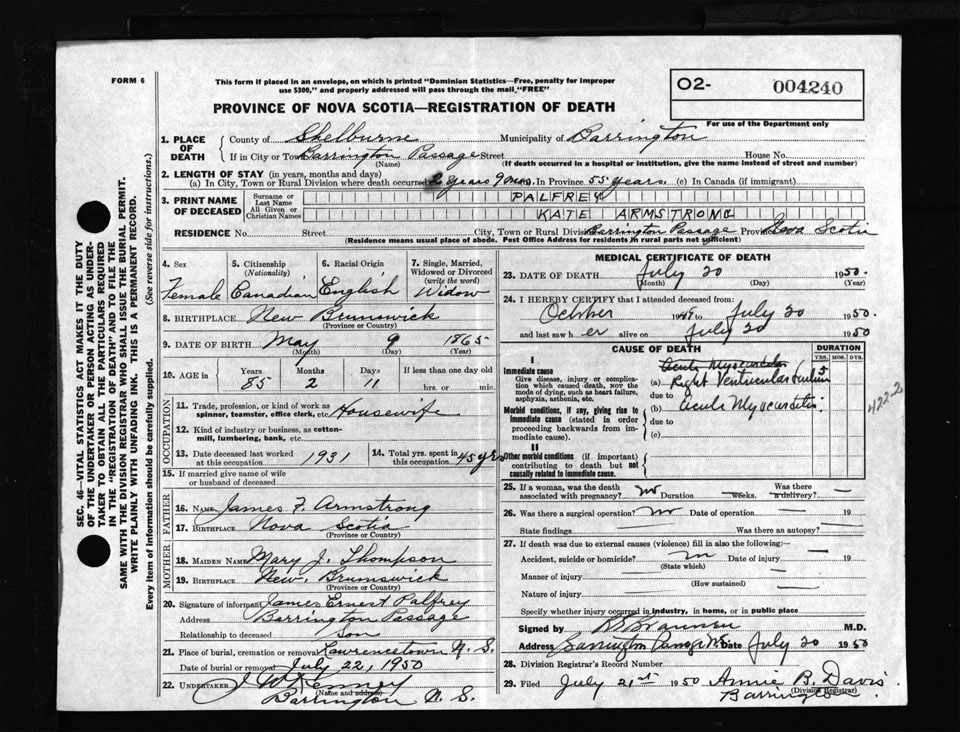 FORM 6
This form if placed in an envelope, on which is printed "Dominion Statistics—Free, penalty for improper
use $300," and properly addressed will pass through the mail, "FREE"
PROVINCE OF NOVA SCOTIA—REGISTRATION OF DEATH
O2- 004240
For use of the Department only
SEC. 46—VITAL STATISTICS ACT MAKES IT THE DUTY
OF THE UNDERTAKER OR PERSON ACTING AS UNDER-
TAKER TO OBTAIN ALL THE PARTICULARS REQUIRED
IN THE "REGISTRATION OF DEATH" AND TO FILE THE
SAME WITH THE DIVISION REGISTRAR WHO SHALL ISSUE THE BURIAL PERMIT.
WRITE PLAINLY WITH UNFADING INK. THIS IS A PERMANENT RECORD.
Every item of information should be carefully supplied. (See reverse side for instructions.)
1. PLACE OF DEATH
County of Shelburne Municipality of Barrington
If in City or Town Barrington Passage Street House No.
(Name) (If death occurred in a hospital or institution, give the name instead of street and number)
2. LENGTH OF STAY (in years, months and days)
(a) In City, Town or Rural Division where death occurred 2 years 9 mos. In Province 55 years. (c) In Canada (if immigrant)
3. PRINT NAME OF DECEASED
Surname or Last Name PALFREY
All Given or Christian Names KATE ARMSTRONG
RESIDENCE No. Street City, Town or Rural Division Barrington Passage Province Nova Scotia
(Residence means usual place of abode. Post Office Address for residents in rural parts not sufficient)
4. Sex Female
5. Citizenship (Nationality) Canadian
6. Racial Origin English
7. Single, Married, Widowed or Divorced (write the word) Widow
8. BIRTHPLACE New Brunswick
(Province or Country)
9. DATE OF BIRTH May 9 1865
(Month) (Day) (Year)
10. AGE IN Years 85 Months 2 Days 11 If less than one day old
hrs. or min.
OCCUPATION
11. Trade, profession, or kind of work as spinner, teamster, office clerk, etc. Housewife
12. Kind of industry or business, as cotton-mill, lumbering, bank, etc.
13. Date deceased last worked at this occupation 1931 14. Total yrs. spent in this occupation 45 yrs
15. If married give name of wife or husband of deceased
FATHER
16. Name James F. Armstrong
17. Birthplace Nova Scotia
(Province or Country)
MOTHER
18. Maiden Name Mary J. Thompson
19. Birthplace New Brunswick
(Province or Country)
20. Signature of informant James Ernest Palfrey
Address Barrington Passage
Relationship to deceased Son
21. Place of burial, cremation or removal Lawrencetown N. S.
Date of burial or removal July 22, 1950
22. Undertaker
(Name and address)
Barrington N. S.
MEDICAL CERTIFICATE OF DEATH
23. DATE OF DEATH July 20 1950.
(Month) (Day) (Year)
24. I HEREBY CERTIFY that I attended deceased from:
October 1949 to July 20 1950.
and last saw her alive on July 20 1950
CAUSE OF DEATH DURATION
YRS. MOS. DYS.
I
Immediate cause
Give disease, injury or complication which caused death, NOT the mode of dying, such as heart failure, asphyxia, asthenia, etc.
(a) Right Ventricular failure 5
due to
Morbid conditions, if any, giving rise to immediate cause (stated in order proceeding backwards from immediate cause).
(b) Acute Myocarditis
due to
(c)
422-2
II
Other morbid conditions (if important) contributing to death but not causally related to immediate cause.
25. If a woman, was the death associated with pregnancy? no Duration — Weeks. Was there a delivery? —
26. Was there a surgical operation? no Date of operation — 19
State findings Was there an autopsy? —
27. If death was due to external causes (violence) fill in also the following:—
Accident, suicide or homicide? Date of injury 19
(State which)
Manner of injury
(How sustained)
Nature of injury
Specify whether injury occurred in industry, in home, or in public place
Signed by M.D.
Address Barrington Passage NS Date July 20 1950
28. Division Registrar's Record Number
29. Filed July 21st 1950 Annie B. Davis
(Division Registrar)
Barrington